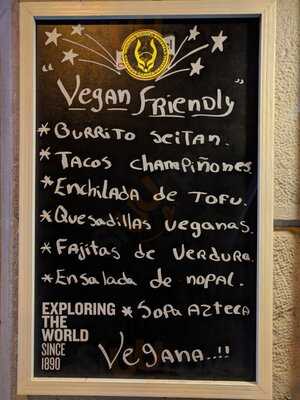 "Vegan Friendly"
* Burrito Seitan.
* Tacos Champiñones.
* Enchilada de Tofu.
* Quesadillas Veganas.
* Fajitas de Verdura.
* Ensalada de nopal.
* Sopa Azteca
Vegana..!!
EXPLORING
THE
WORLD
SINCE
1890